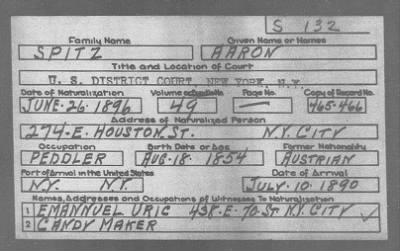 S 132
Family Name Given Name or Names
SPITZ AARON
Title and Location of Court
U. S. DISTRICT COURT, NEW YORK, N.Y.
Date of Naturalization Volume or Bundle No. Page No. Copy of Record No.
JUNE-26-1896 49 — 465-466
Address of Naturalized Person
274-E. HOUSTON. ST. N.Y. CITY
Occupation Birth Date or Age Former Nationality
PEDDLER AUG-18-1854 AUSTRIAN
Port of Arrival in the United States Date of Arrival
N.Y. N.Y. JULY-10-1890
Names, Addresses and Occupations of Witnesses To Naturalization
1 EMANNUEL URIC E-70-ST N.Y. CITY
2 CANDY MAKER